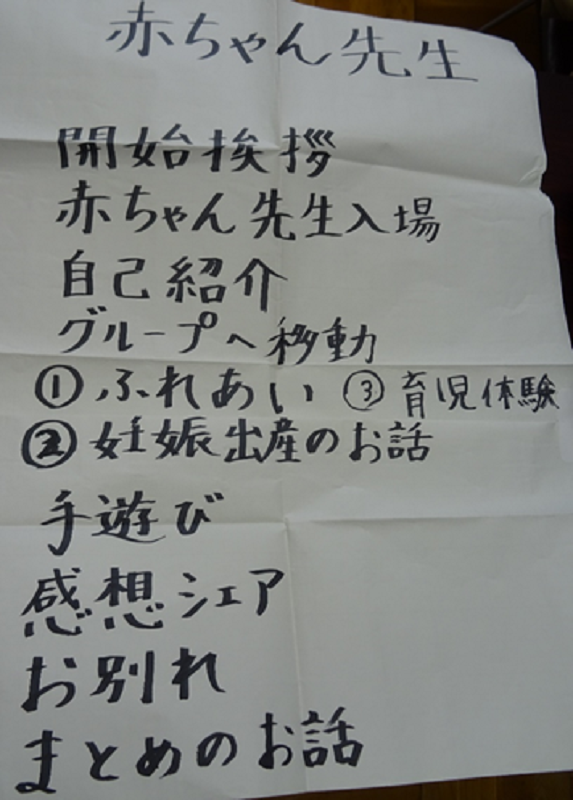 赤ちゃん先生
開始挨拶
赤ちゃん先生入場
自己紹介
グループへ移動
①ふれあい ③育児体験
②妊娠出産のお話
手遊び
感想シェア
お別れ
まとめのお話